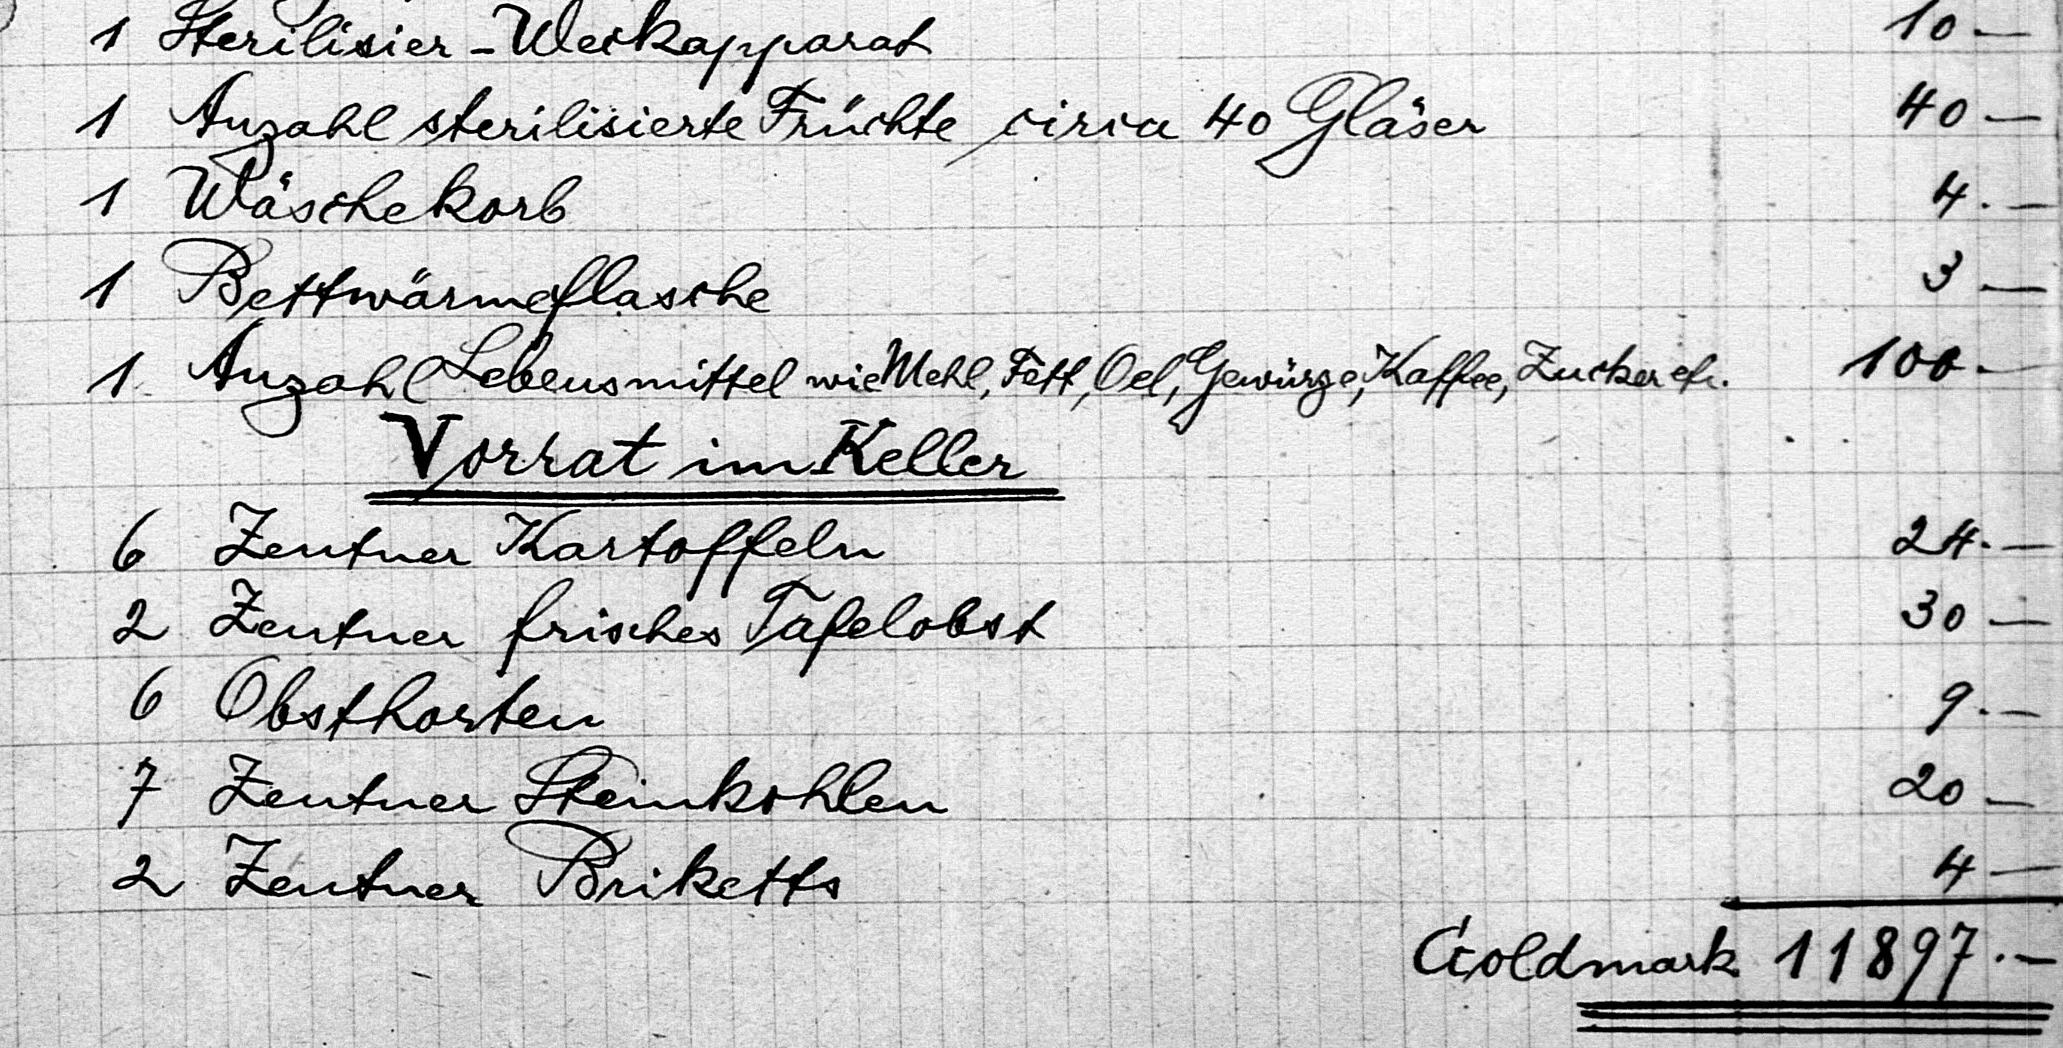 1 Sterilisier-Weckapparat 10 —
1 Anzahl sterilisierte Früchte circa 40 Gläser 40 —
1 Wäschekorb 4. —
1 Bettwärmeflasche 3 —
1 Anzahl Lebensmittel wie Mehl, Fett, Oel, Gewürze, Kaffee, Zucker etc. 100.-
Vorrat im Keller
6 Zentner Kartoffeln 24. —
2 Zentner frisches Tafelobst 30 —
6 Obsthorten 9. —
7 Zentner Steinkohlen 20 —
2 Zentner Briketts 4 —
Goldmark 11897. —